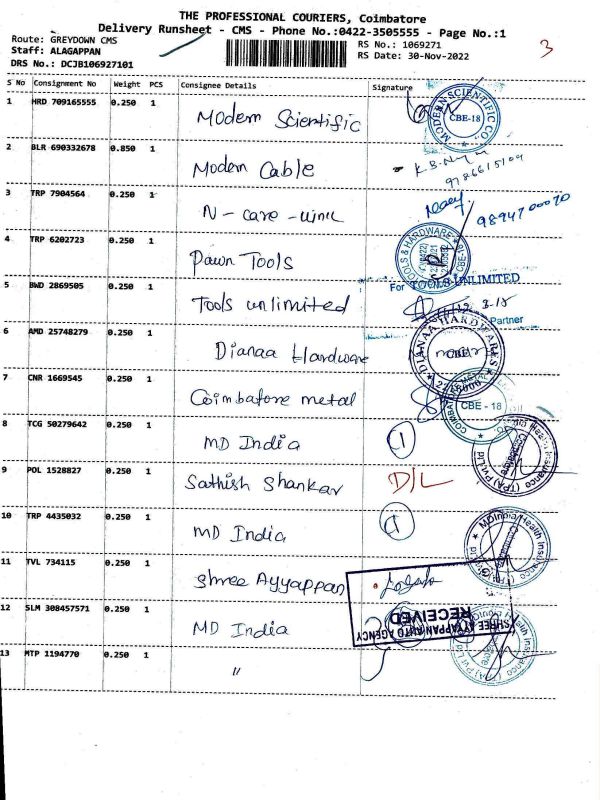 THE PROFESSIONAL COURIERS, Coimbatore
Delivery Runsheet - CMS - Phone No.:0422-3505555 - Page No.:1
Route: GREYDOWN CMS
RS No.: 1069271
3
Staff: ALAGAPPAN
RS Date: 30-Nov-2022
DRS No.: DCJB106927101
S No Consignment No Weight PCS Consignee Details Signature
1 HRD 709165555 0.250 1 Modern Scientific
MODERN SCIENTIFIC CO. CBE-18
2 BLR 690332678 0.850 1 Modern Cable
3 TRP 7904564 0.250 1 N - care -
9894700070
4 TRP 6202723 0.250 1 Pawn Tools
TOOLS & HARDWARE
5 BWD 2869505 0.250 1 Tools unlimited
For TOOLS UNLIMITED
Partner
6 AMD 25748279 0.250 1 Dianaa Hardware
DIANAA HARDWARES
7 CNR 1669545 0.250 1 Coimbatore metal
CBE - 18
8 TCG 50279642 0.250 1 MD India
1
Health Insurance (TPA) Pvt Ltd Coimbatore
9 POL 1528827 0.250 1 Sathish Shankar D/L
10 TRP 4435032 0.250 1 MD India
1
MDIndia Health Insurance
11 TVL 734115 0.250 1 Shree Ayyappan
SHREE AYYAPPAN AUTO AGENCY
RECEIVED
12 SLM 308457571 0.250 1 MD India
13 MTP 1194770 0.250 1 "